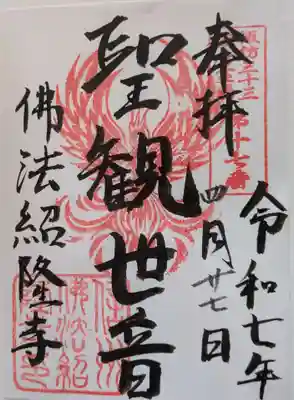 奉拝
令和七年
四月廿七日
聖観世音
佛法紹隆寺